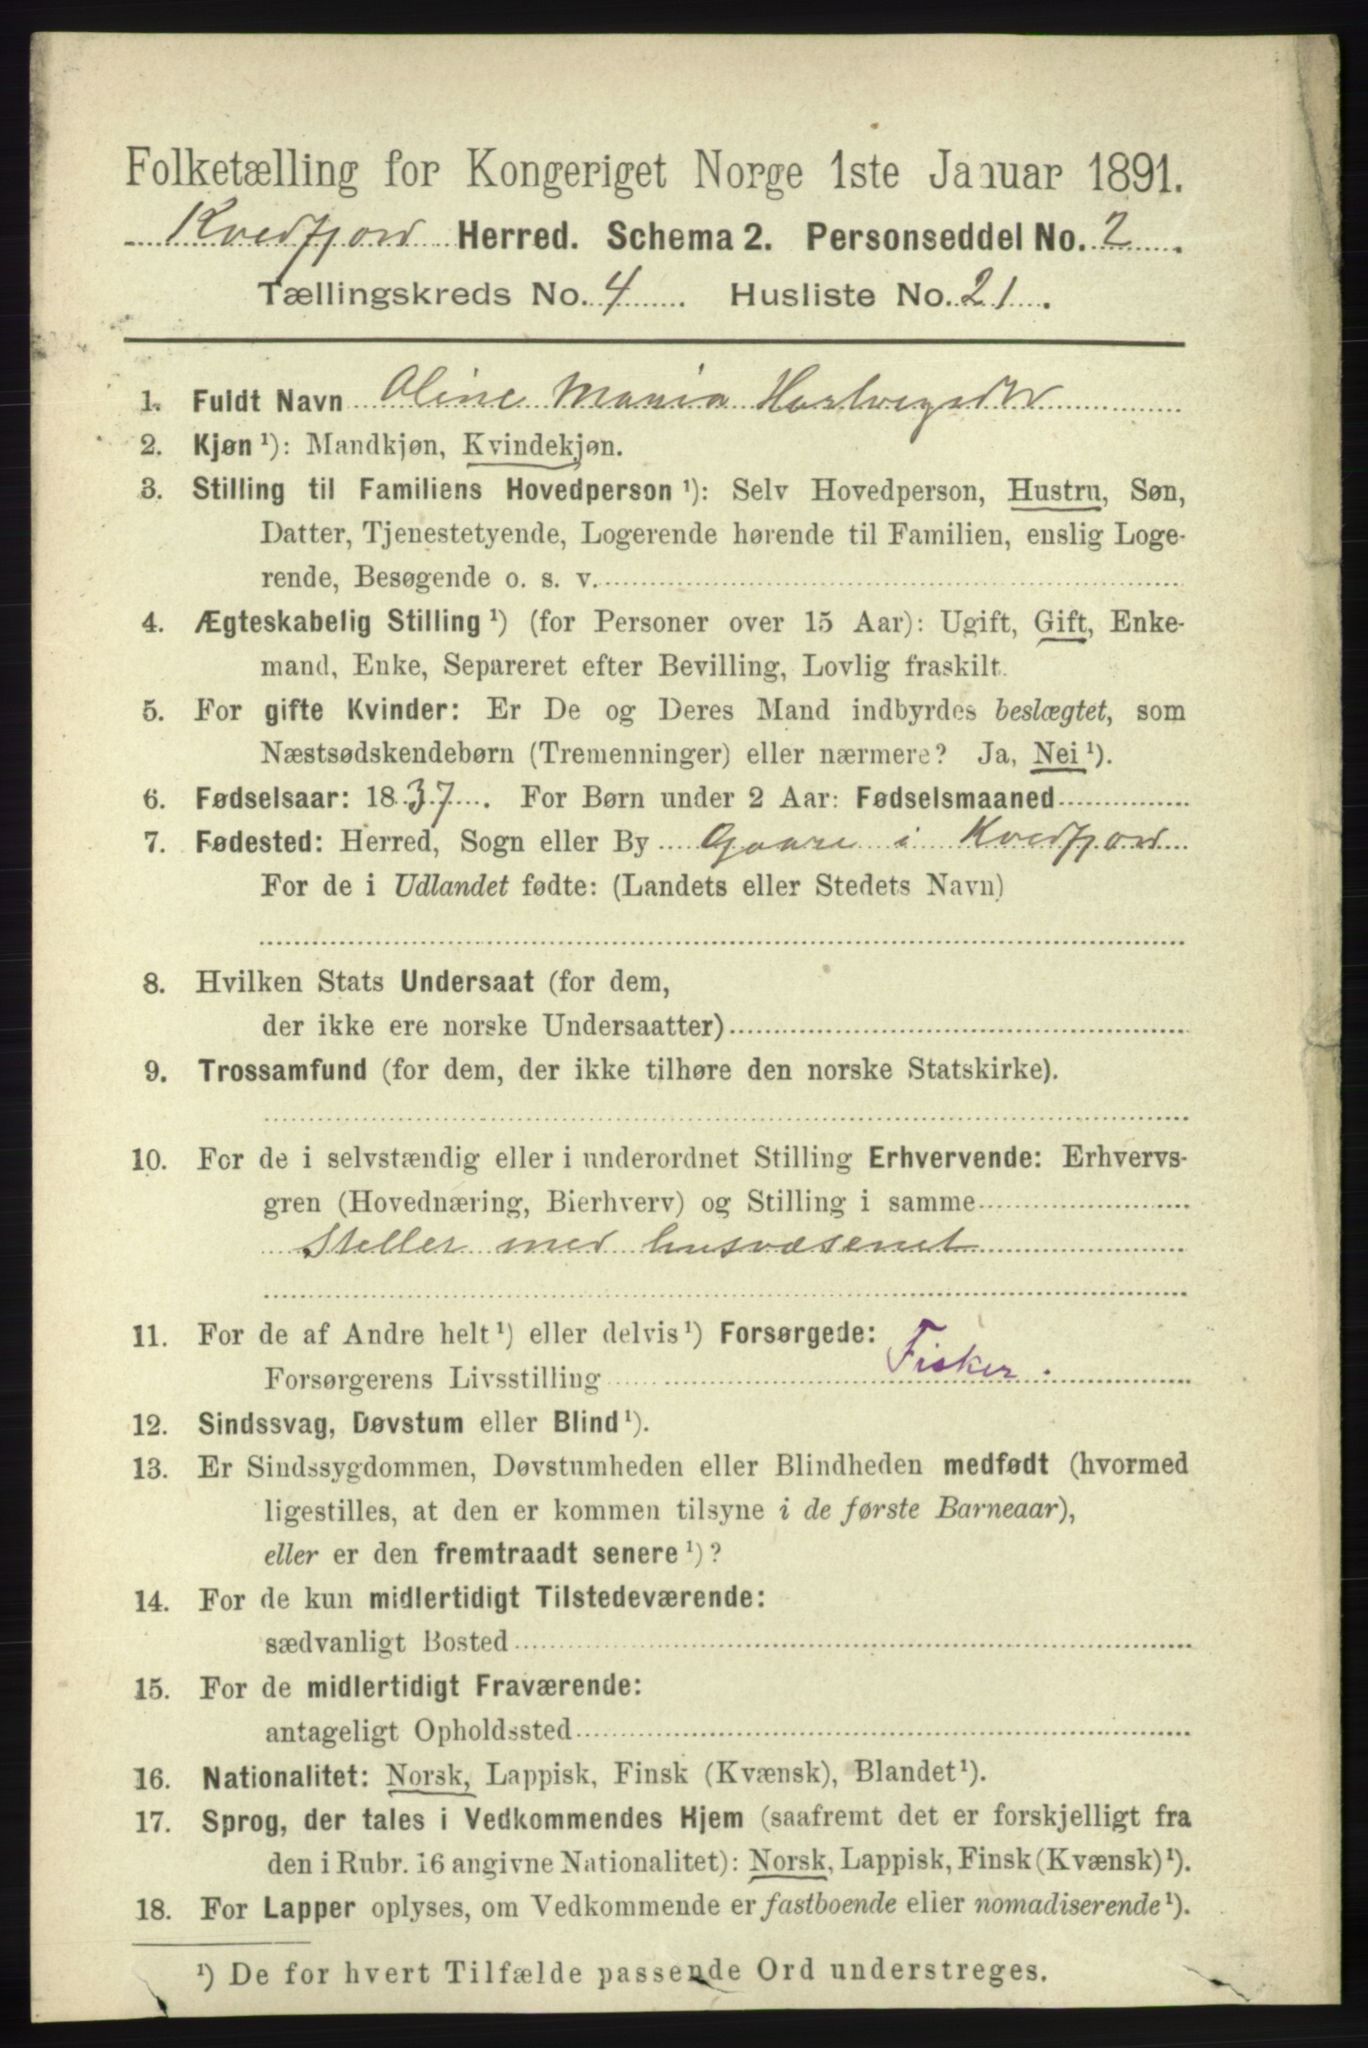 Folketælling for Kongeriget Norge 1ste Januar 1891.
Kvedfjord Herred. Schema 2. Personseddel No. 2.
Tællingskreds No. 4. Husliste No. 21.
1. Fuldt Navn Oline Maria Hartvigsdtr
2. Kjøn ¹): Mandkjøn, Kvindekjøn.
3. Stilling til Familiens Hovedperson ¹): Selv Hovedperson, Hustru, Søn,
Datter, Tjenestetyende, Logerende hørende til Familien, enslig Loge-
rende, Besøgende o. s. v.
4. Ægteskabelig Stilling ¹) (for Personer over 15 Aar): Ugift, Gift, Enke-
mand, Enke, Separeret efter Bevilling, Lovlig fraskilt.
5. For gifte Kvinder: Er De og Deres Mand indbyrdes beslægtet, som
Næstsødskendebørn (Tremenninger) eller nærmere? Ja, Nei ¹).
6. Fødselsaar: 1837. For Børn under 2 Aar: Fødselsmaaned
7. Fødested: Herred, Sogn eller By Gaare i Kvedfjord
For de i Udlandet fødte: (Landets eller Stedets Navn)
8. Hvilken Stats Undersaat (for dem,
der ikke ere norske Undersaatter)
9. Trossamfund (for dem, der ikke tilhøre den norske Statskirke).
10. For de i selvstændig eller i underordnet Stilling Erhvervende: Erhvervs-
gren (Hovednæring, Bierhverv) og Stilling i samme
Steller med husvæsenet
11. For de af Andre helt ¹) eller delvis ¹) Forsørgede:
Forsørgerens Livsstilling Fisker.
12. Sindssvag, Døvstum eller Blind ¹).
13. Er Sindssygdommen, Døvstumheden eller Blindheden medfødt (hvormed
ligestilles, at den er kommen tilsyne i de første Barneaar),
eller er den fremtraadt senere ¹)?
14. For de kun midlertidigt Tilstedeværende:
sædvanligt Bosted
15. For de midlertidigt Fraværende:
antageligt Opholdssted
16. Nationalitet: Norsk, Lappisk, Finsk (Kvænsk), Blandet ¹).
17. Sprog, der tales i Vedkommendes Hjem (saafremt det er forskjelligt fra
den i Rubr. 16 angivne Nationalitet): Norsk, Lappisk, Finsk (Kvænsk) ¹).
18. For Lapper oplyses, om Vedkommende er fastboende eller nomadiserende ¹).
¹) De for hvert Tilfælde passende Ord understreges.